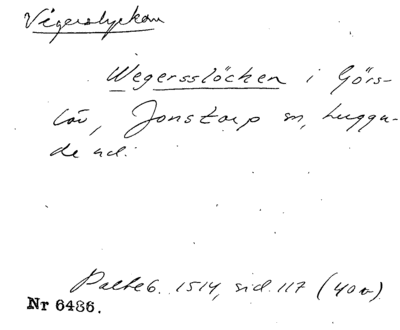 Vegerslyckan
Wegersslöcken i Görs-
löv, Jonstorp sn, Luggu-
de hd.
Palteb. 1514, sid. 117 (40v)
Nr 6486.